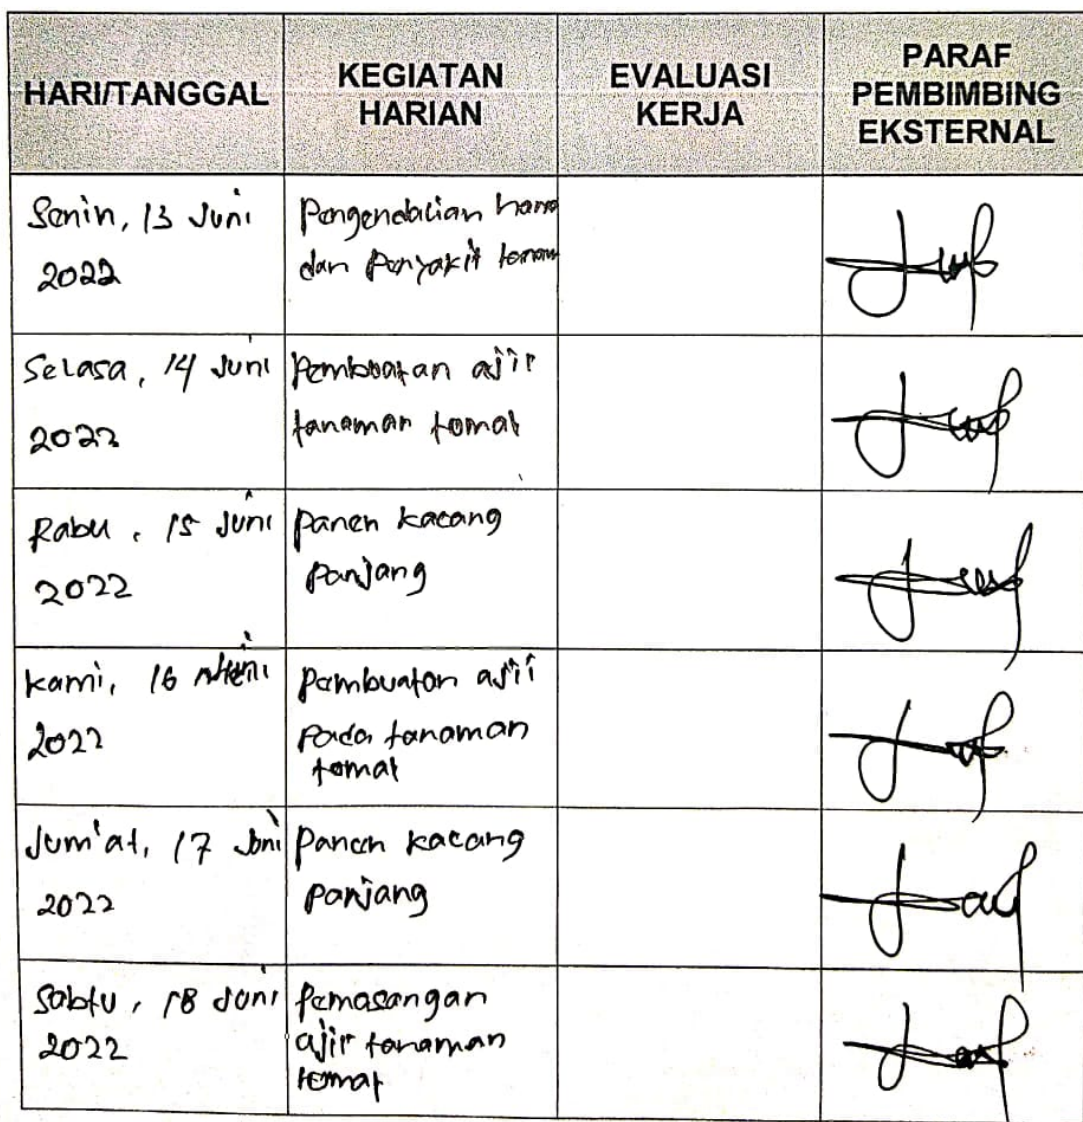 HARI/TANGGAL
KEGIATAN
HARIAN
EVALUASI
KERJA
PARAF
PEMBIMBING
EKSTERNAL
Senin, 13 Juni
2022
Pengendalian hama
dan Penyakit tanam
Selasa, 14 Juni
2022
Pembuatan ajir
tanaman tomat
Rabu, 15 Juni
2022
Panen kacang
Panjang
Kami, 16
2022
Pembuatan ajir
Pada tanaman
tomat
Jum'at, 17 Juni
2022
Panen kacang
Panjang
Sabtu, 18 Juni
2022
Pemasangan
ajir tanaman
tomat